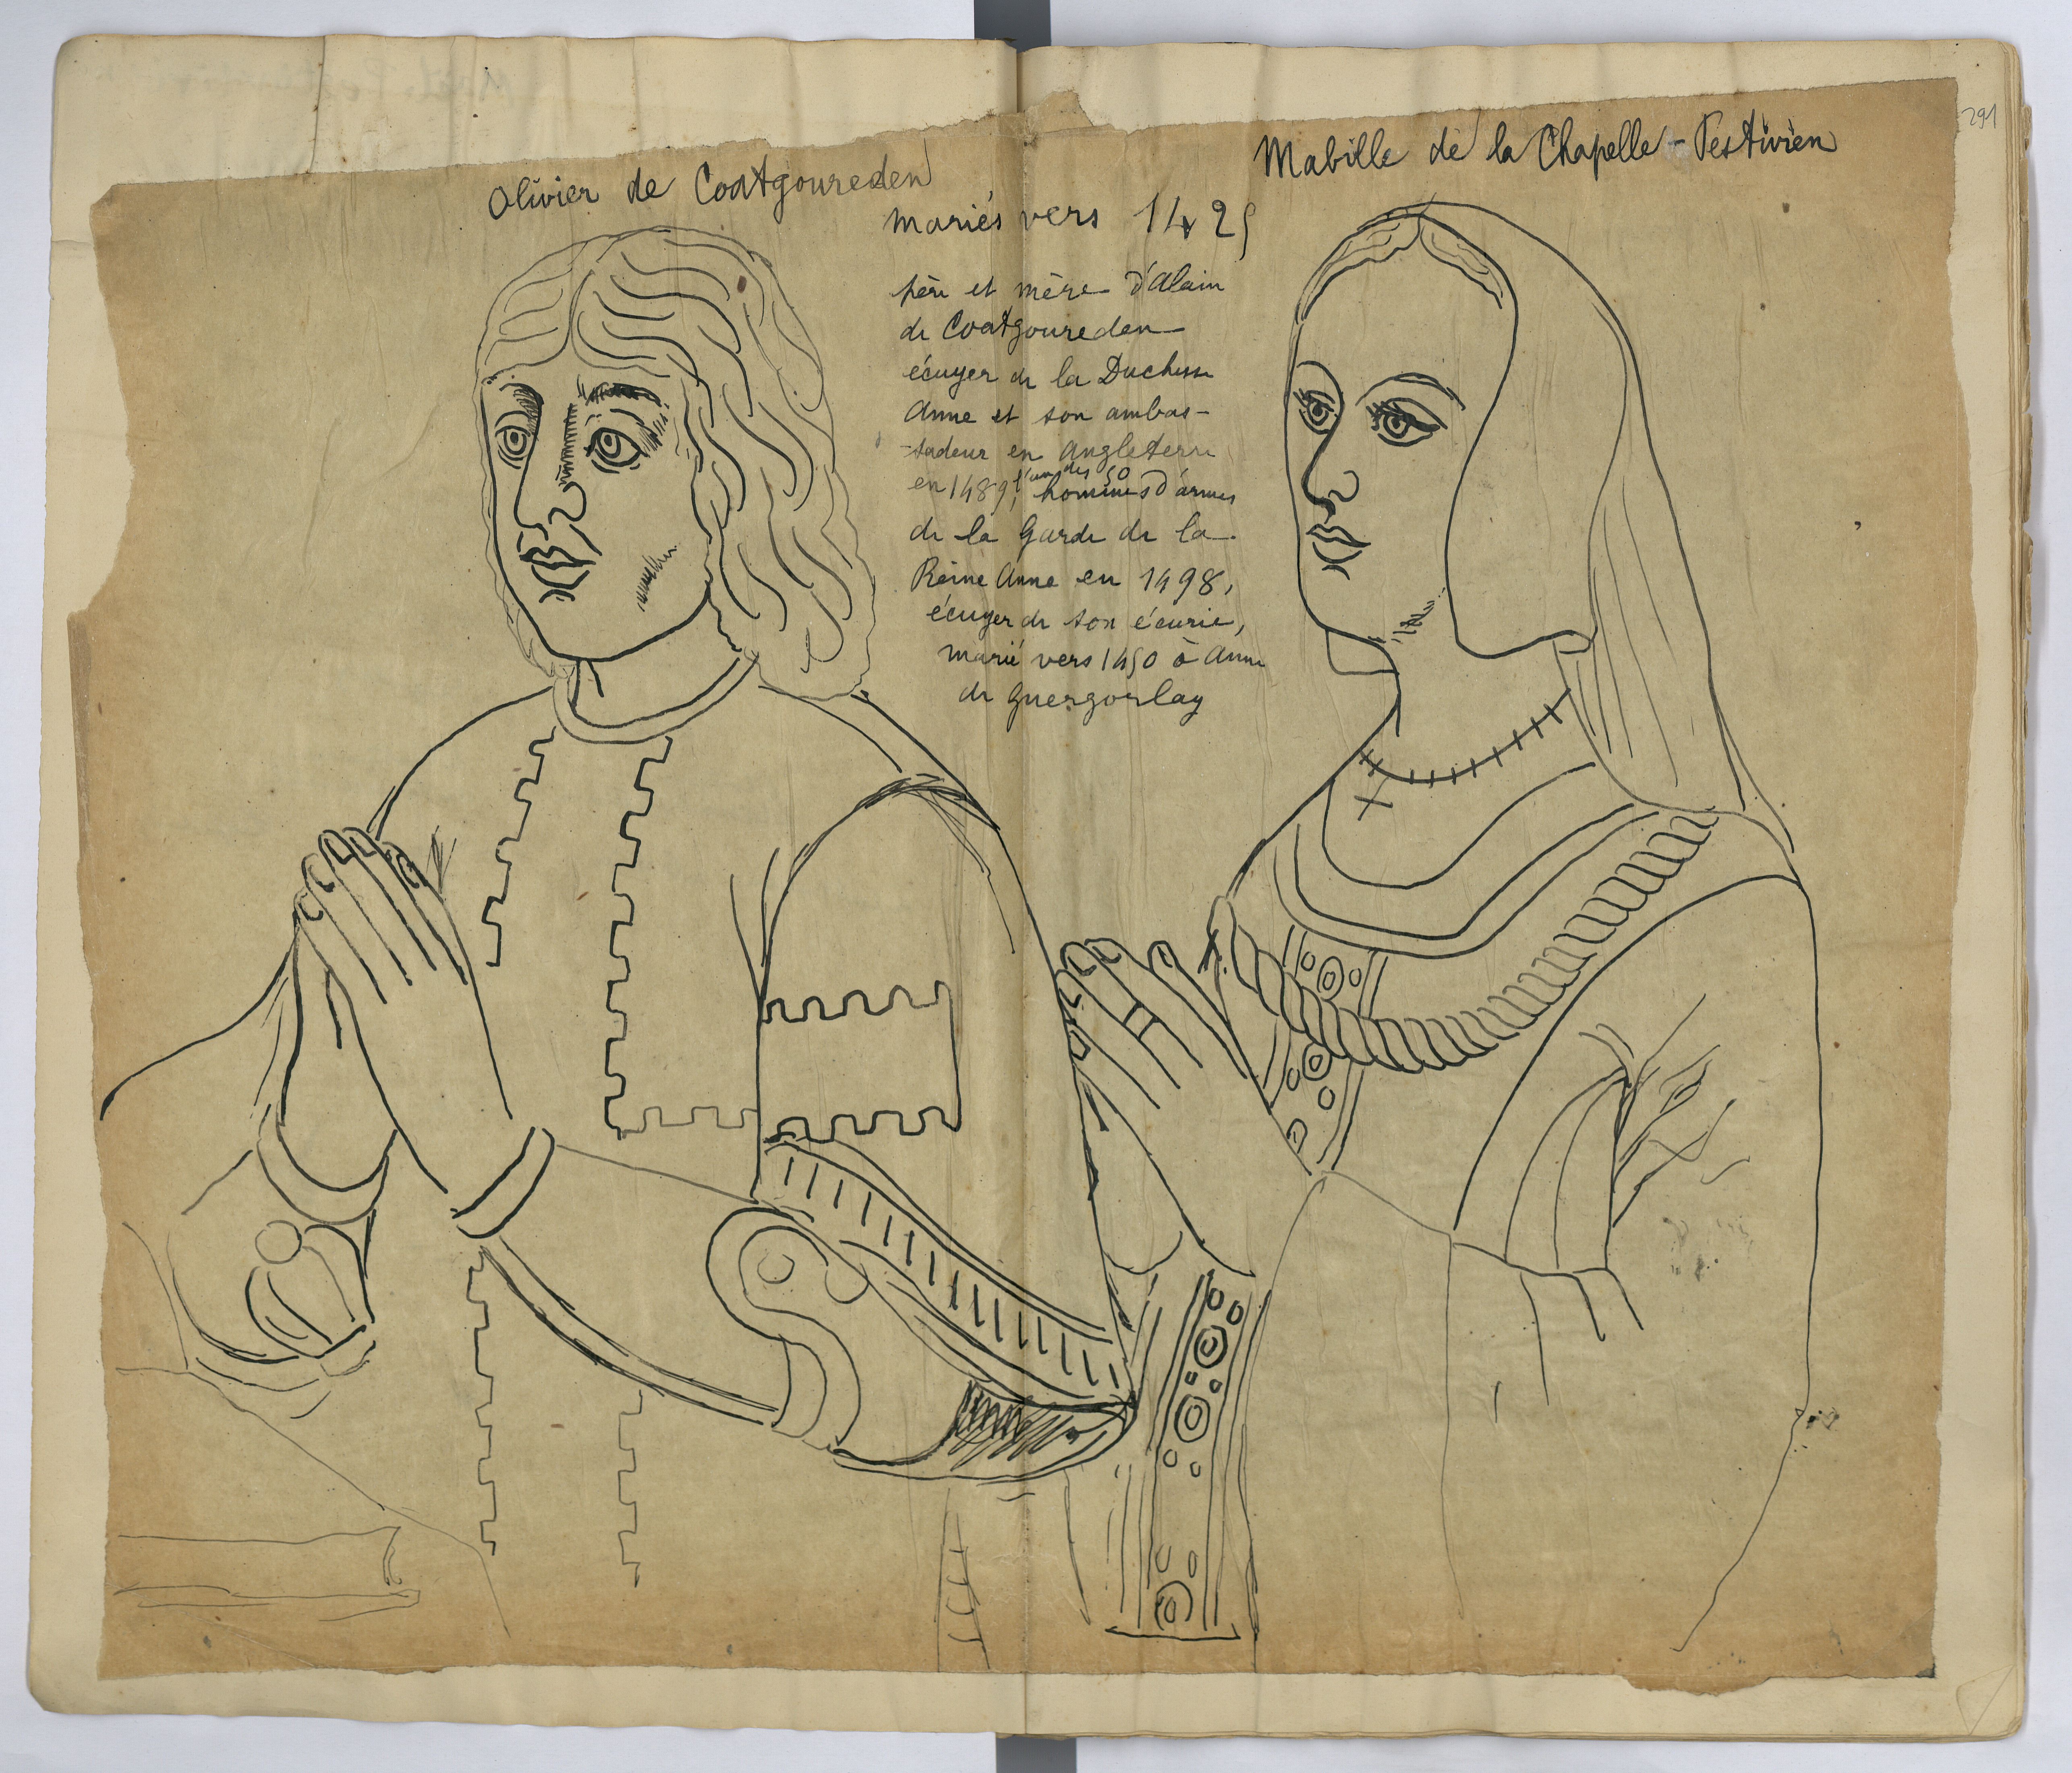 291
Olivier de Coatgoureden
Mabille de la Chapelle-Pestivien
mariés vers 1425
père et mère d'Alain
de Coatgoureden
écuyer de la Duchesse
Anne et son ambas-
-sadeur en Angleterre
en 1489, l'un des 50 hommes d'armes
de la Garde de la
Reine Anne en 1498,
écuyer de son écurie,
marié vers 1450 à Anne
de Guergorlay